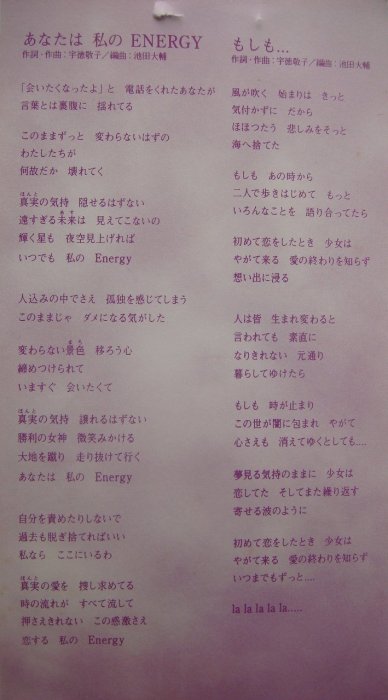 あなたは 私の ENERGY
作詞・作曲：宇徳敬子／編曲：池田大輔
「会いたくなったよ」と 電話をくれたあなたが
言葉とは裏腹に 揺れてる
このままずっと 変わらないはずの
わたしたちが
何故だか 壊れてく
ほんと
真実の気持 隠せるはずない
あす
遠すぎる未来は 見えてこないの
輝く星も 夜空見上げれば
いつでも 私の Energy
人込みの中でさえ 孤独を感じてしまう
このままじゃ ダメになる気がした
いろ
変わらない景色 移ろう心
締めつけられて
いますぐ 会いたくて
ほんと
真実の気持 譲れるはずない
勝利の女神 微笑みかける
大地を蹴り 走り抜けて行く
あなたは 私の Energy
自分を責めたりしないで
過去も脱ぎ捨てればいい
私なら ここにいるわ
ほんと
真実の愛を 捜し求めてる
時の流れが すべて流して
押さえきれない この感激さえ
恋する 私の Energy
もしも…
作詞・作曲：宇徳敬子／編曲：池田大輔
風が吹く 始まりは きっと
気付かずに だから
ほほつたう 悲しみをそっと
海へ捨てた
もしも あの時から
二人で歩きはじめて もっと
いろんなことを 語り合ってたら
初めて恋をしたとき 少女は
やがて来る 愛の終わりを知らず
想い出に浸る
人は皆 生まれ変わると
言われても 素直に
なりきれない 元通り
暮らしてゆけたら
もしも 時が止まり
この世が闇に包まれ やがて
心さえも 消えてゆくとしても‥‥
夢見る気持のままに 少女は
恋してた そしてまた繰り返す
寄せる波のように
初めて恋をしたとき 少女は
やがて来る 愛の終わりを知らず
いつまでもずっと‥‥
la la la la la‥‥‥